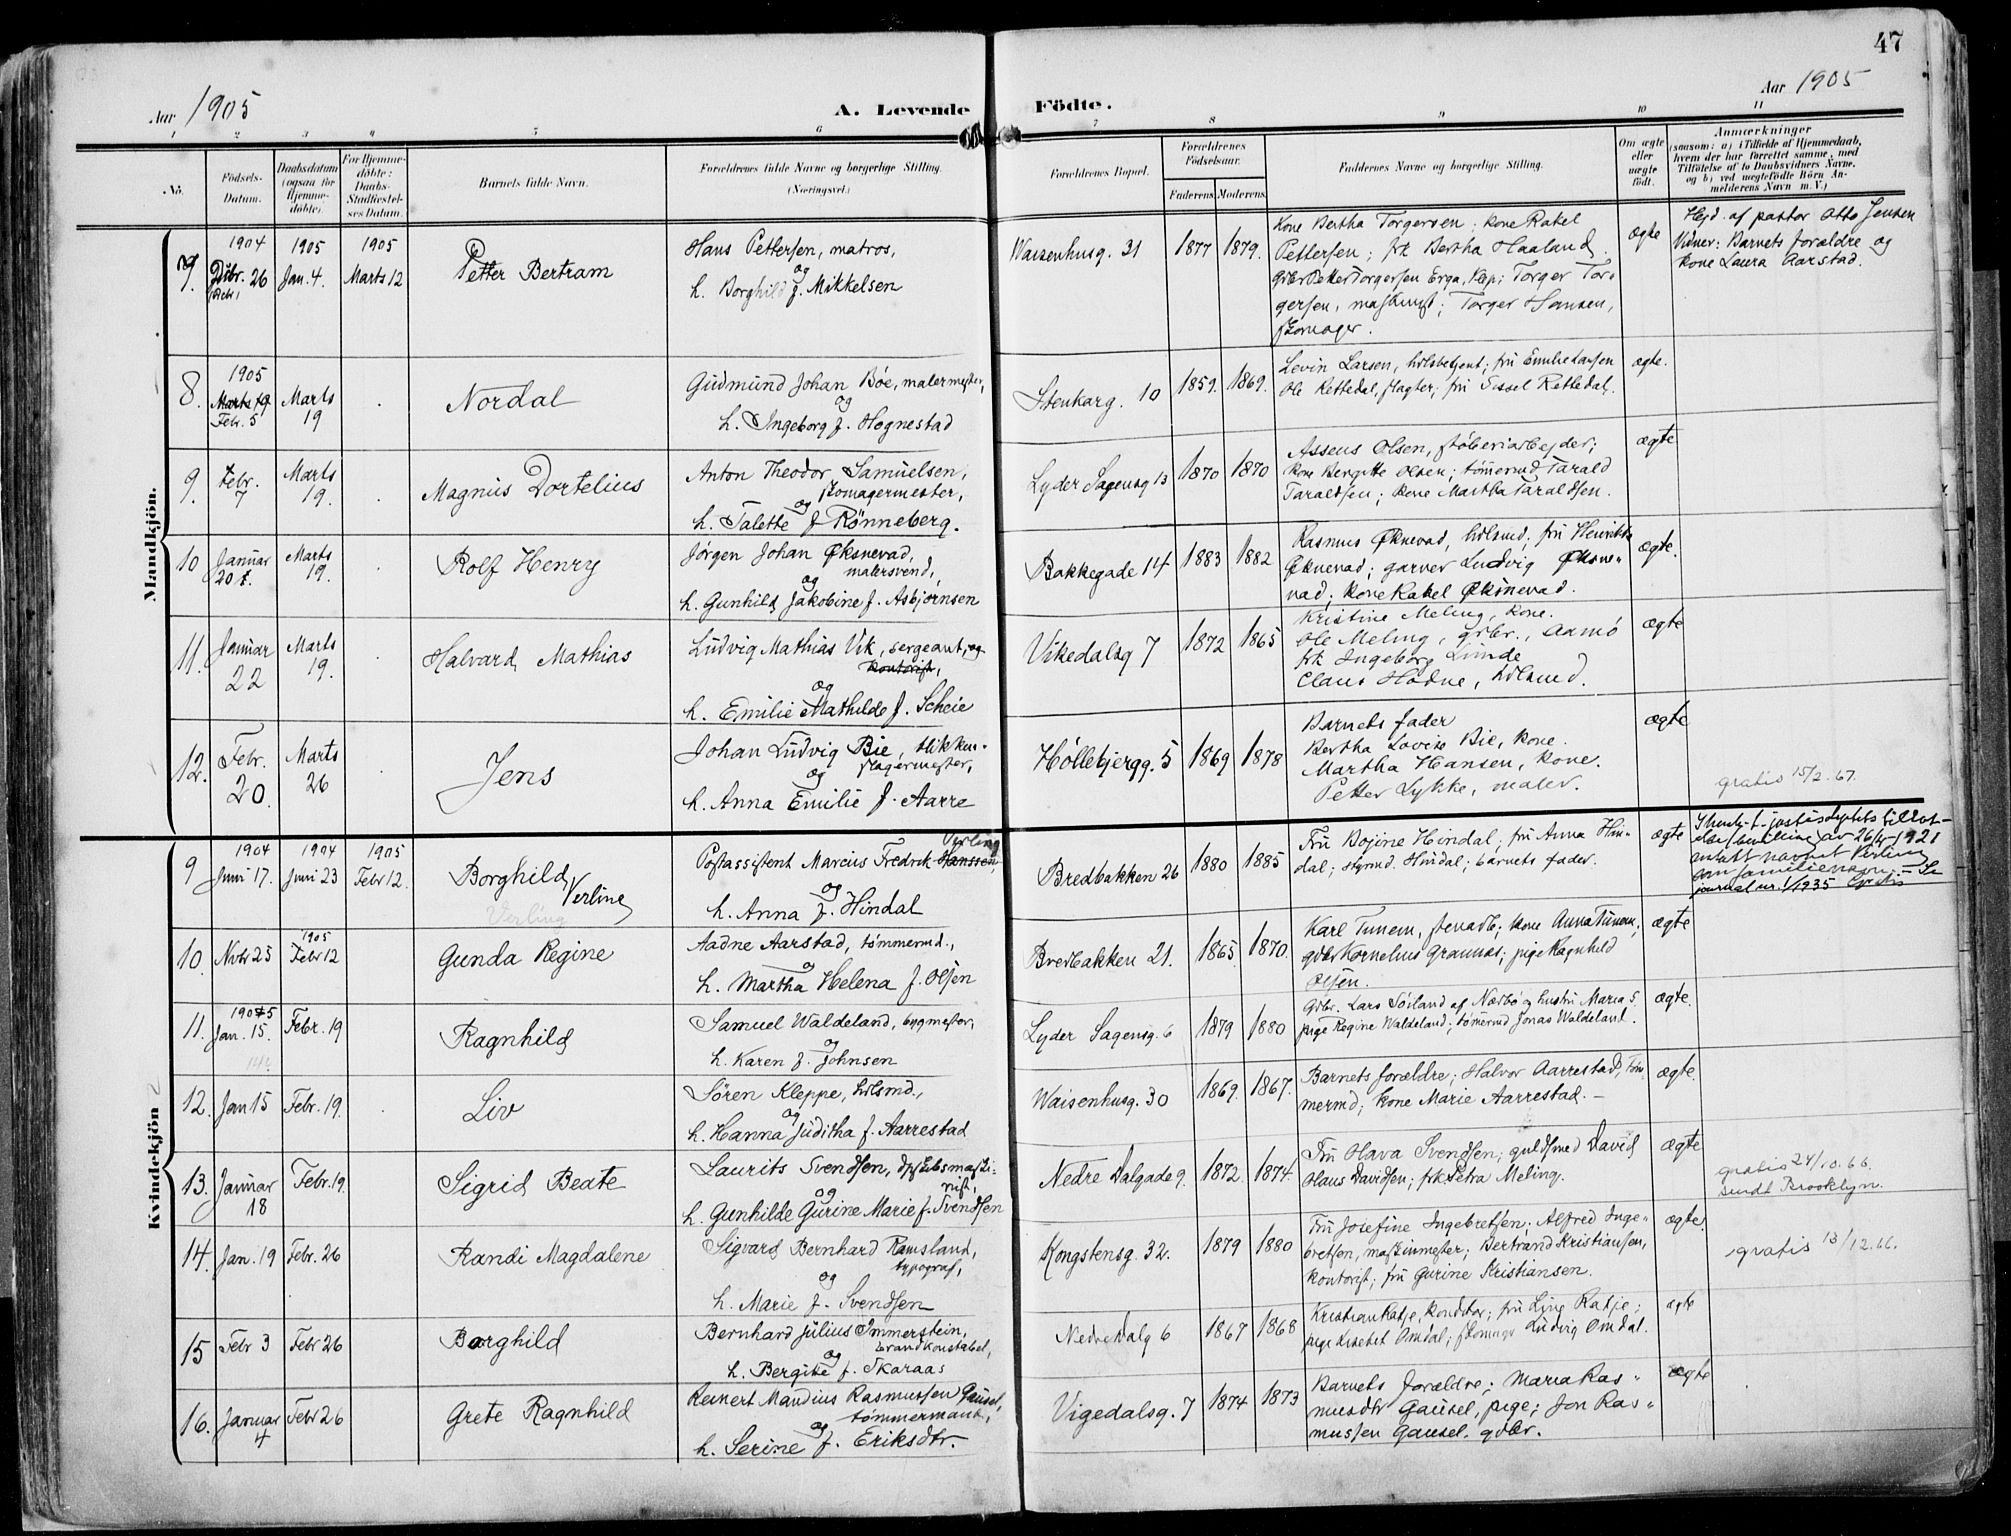 47
Aar 1905
A. Levende Födte.
Aar 1905
1 2 3 4 5 6 7 8 9 10 11
No.
Födsels-
Datum.
Daabsdatum
(ogsaa for
Hjemme-
döbte).
For Hjemme-
döbte:
Daabs-
Stadfæstel-
ses Datum.
Barnets fulde Navn.
Forældrenes fulde Navne og borgerlige Stilling.
(Næringsvei.)
Forældrenes Bopæl.
Forældrenes
Födselsaar.
Faderens
Moderens
Faddernes Navne og borgerlige Stilling.
Om ægte
eller
uægte
født.
Anmærkninger
(saasom: a) i Tilfælde af Hjemmedaab,
hvem der har forrettet samme, med
Tilföielse af to Daabsvidners Navne,
og b) ved uægtefödte Börn An-
melderens Navn m. V.)
Mandkjön.
7.
1904
Dcbr. 26
1905
Jan. 4.
1905
Marts 12
Petter Bertram
Hans Pettersen, matros,
og
h. Borghild f. Mikkelsen
Waisenhusg. 31
1877
1879.
Kone Bertha Torgersen; kone Rakel
Pettersen; frk Bertha Haaland.
Gbr Petter Torgersen Erga, Klep; Torger Tor-
gersen, maskinist; Torger Hansen,
skomager.
ægte
Hjd. af pastor Otto Jensen
Vidner: Barnets forældre og
kone Laura Aarstad.
8.
1905
Marts 19
Febr. 5
Marts
19
Nordal
Gudmund Johan Bøe, malermester,
og
h. Ingeborg f. Hognestad
Stenkarg. 10
1859.
1869.
Levin Larsen, hdlsbetjent; fru Emilie Larsen
Ole Rettedal, slagter; fru Sissel Rettedal.
ægte.
9.
Febr.
7
Marts
19.
Magnus Dortelius
Anton Theodor Samuelsen,
skomagermester,
og
h. Talette f Rönneberg.
Lyder Sagensg 13
1870
1870
Asseus Olsen, støberiarbejder;
kone Bergitte Olsen; tömermd Tarald
Taraldsen; kone Martha Taraldsen.
ægte
10
Januar
20.
Marts
19.
Rolf Henry
Jörgen Johan Øksnevad,
malersvend,
og
h. Gunhild Jakobine f. Asbjörnsen
Bakkegade 14
1883
1882
Rasmus Øksnevad, hdlsmd; fru Henrikke
Øksnevad; garver Ludvig Øksne-
vad; kone Rakel Øksnevad.
ægte.
11.
Januar
22
Marts
19.
Halvard Mathias
Ludvig Mathias Vik, sergeant, og
kontorist,
og
h. Emilie Mathilde f. Scheie
Vikedalsg 7
1872
1865
Kristine Meling, kone.
Ole Meling, grbr., Aamö
frk Ingeborg Lunde
Claus Hodne, hdlsmd.
ægte
12.
Febr.
20.
Marts
26
Jens
Johan Ludvig Bie, blikken-
slagermester,
og
h. Anna Emilie f. Aarre
Hollebjergg. 5
1869
1878
Barnets fader
Bertha Lovise Bie, kone.
Martha Hansen, kone.
Petter Lykke, maler.
ægte
gratis 15/2.67.
Kvindekjön
9
1904
Juni 17.
1904
Juni 23
1905
Febr 12.
Borghild
Verling
Verling
Verling
Postassistent Marcus Fredrik Hanssen,
og
h. Anna f. Hindal
Bredbakken 26
1880
1885
Fru Bojine Hindal; fru Anna Hin-
dal; styrmd. Hindal; barnets fader.
ægte
av 26/4-1921
antatt navnet Verling
som familienavn. -
journal nr. 1/1935
10.
Nvbr 25
1905
Febr 12
Gunda Regine
Aadne Aarstad, tömmermd.,
og
h. Martha Helena f. Olsen
Bredbakken 21.
1865
1870.
Karl Tunem, kone Anna Tunem,
gdbr Kornelius Grannæs; pige Ragnhild
Olsen.
ægte
11.
1905
Jan. 15.
Febr. 19
Ragnhild
Samuel Waldeland, bygmester,
og
h. Karen f. Johnsen
Lyder Sagensg. 6
1879
1880
Gdbr. Lars Söiland af Nærbö og hustru Maria S.
pige Regine Waldeland; tömermd Jonas Waldeland.
ægte.
12.
Jan 15
Febr. 19.
Liv
Sören Kleppe, hdlsmd.,
og
h. Hanna Juditha f. Aarrestad
Waisenhusg. 30
1869.
1867.
Barnets forældre; Halvor Aarrestad, töm-
mermd; kone Marie Aarrestad. -
ægte.
13.
Januar
18
Febr. 19
Sigrid Beate
Laurits Svendsen, dpskibsmaski-
nist,
og
h. Gunhilde Gurine Marie f. Svendsen
Nedre Dalgade 9.
1872.
1874.
Fru Olava Svendsen; guldsmed David
Olaus Davidsen; frk. Petra Meling.
ægte
gratis 24/10.66.
sendt Brooklyn.
14.
Jan. 19
Febr. 26
Randi Magdalene
Sigvard Bernhard Ramsland,
typograf,
og
h. Marie f. Svendsen
Kongstensg. 32.
1879
1880
Fru Josefine Ingebretsen; Alfred Inge-
bretsen, maskinmester; Bertrand Kristiansen,
kontorist; fru Gurine Kristiansen.
ægte.
gratis 13/12.66.
15
Febr 3
Febr 26
Borghild
Bernhard Julius Immerstein,
brandkonstabel,
og
h. Bergitte f. Skaraas
Nedre Dalg 6
1867
1868
Kristian Ratje, konditor; fru Line Ratje;
pige Lisebet Omdal; skomager Ludvig Omdal.
ægte
16.
Januar
4
Febr 26
Grete Ragnhild
Reinert Mandius Rasmussen Gausel,
tömmermand,
og
h. Serine f. Eriksdtr.
Vigedalsg. 7
1874
1873
Barnets forældre; Maria Ras-
musdtr Gausel, pige; Jon Ras-
mussen Gausel, gdbr.
ægte